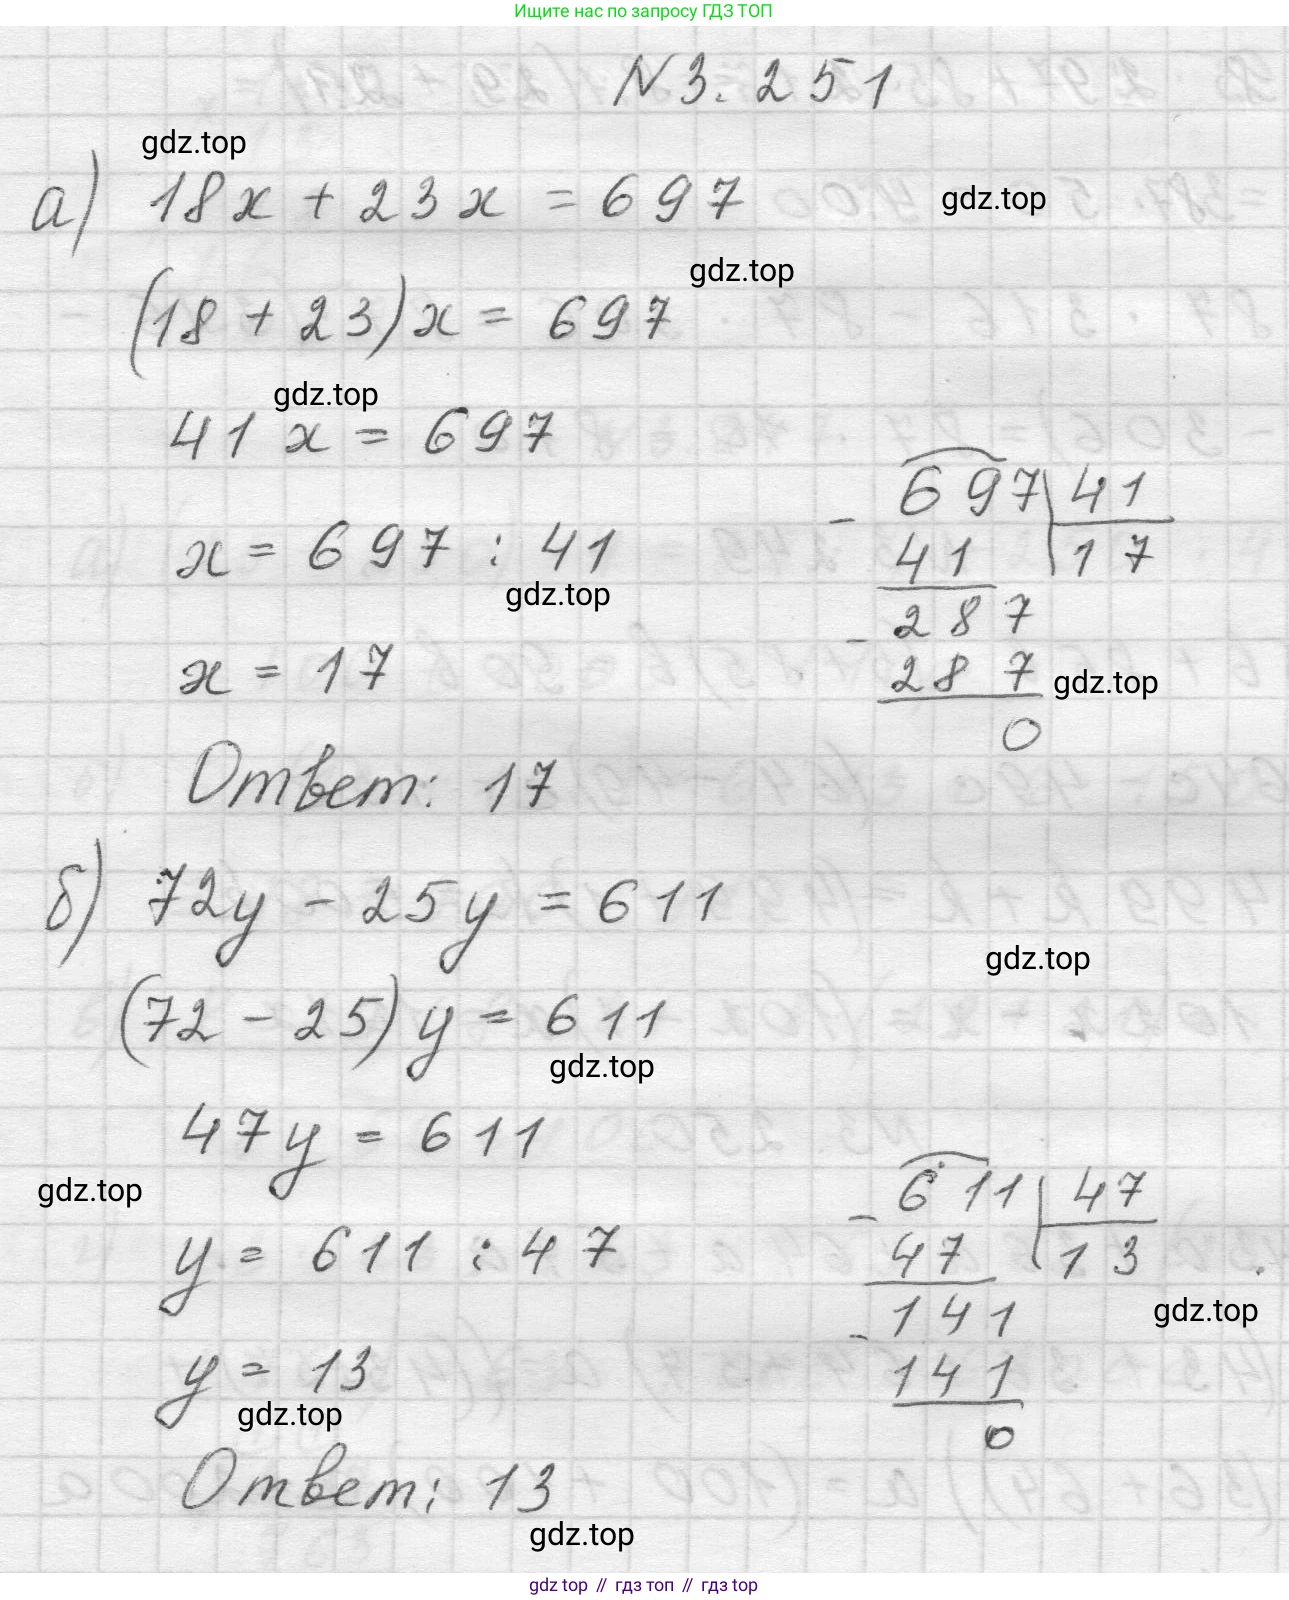 Ищите нас по запросу ГДЗ ТОП
N3.251
gdz.top
а) 18x + 23x = 697
gdz.top
gdz.top
(18 + 23)x = 697
gdz.top
41x = 697
697 | 41
x = 697 : 41
- 41 | 17
gdz.top
287
x = 17
- 287
gdz.top
0
Ответ: 17
б) 72y - 25y = 611
gdz.top
(72 - 25)y = 611
gdz.top
47y = 611
gdz.top
611 | 47
y = 611 : 47
- 47 | 13
gdz.top
141
y = 13
- 141
gdz.top
0
Ответ: 13
gdz.top
gdz top // гдз топ // гдз top